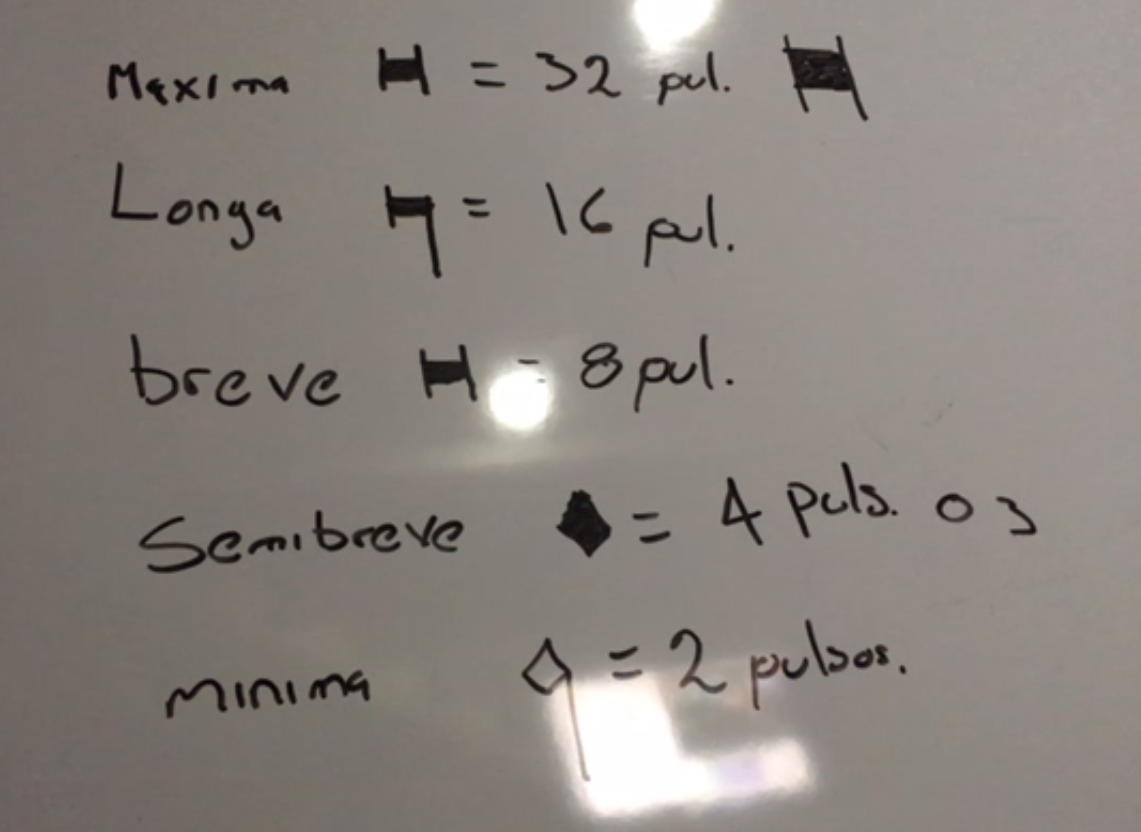 Maxima = 32 pul.
Longa = 16 pul.
breve = 8 pul.
Semibreve = 4 puls. o 3
minima = 2 pulsos.